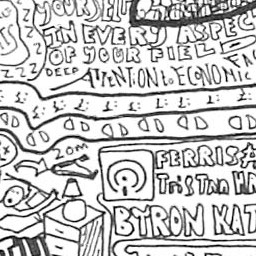 YOURSELF
IN EVERY ASPEC
OF YOUR FIEL
Z Z Z Z DEEP ATTENTION to ECONOMIC FAC
£ £ £ £ £ £
ZOM
FERRIS#
TrisTan HA
BYRON KAT